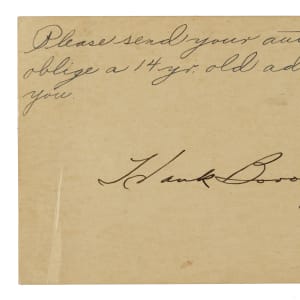 Please send your au
oblige a 14 yr. old ad
you.
Hank Boro